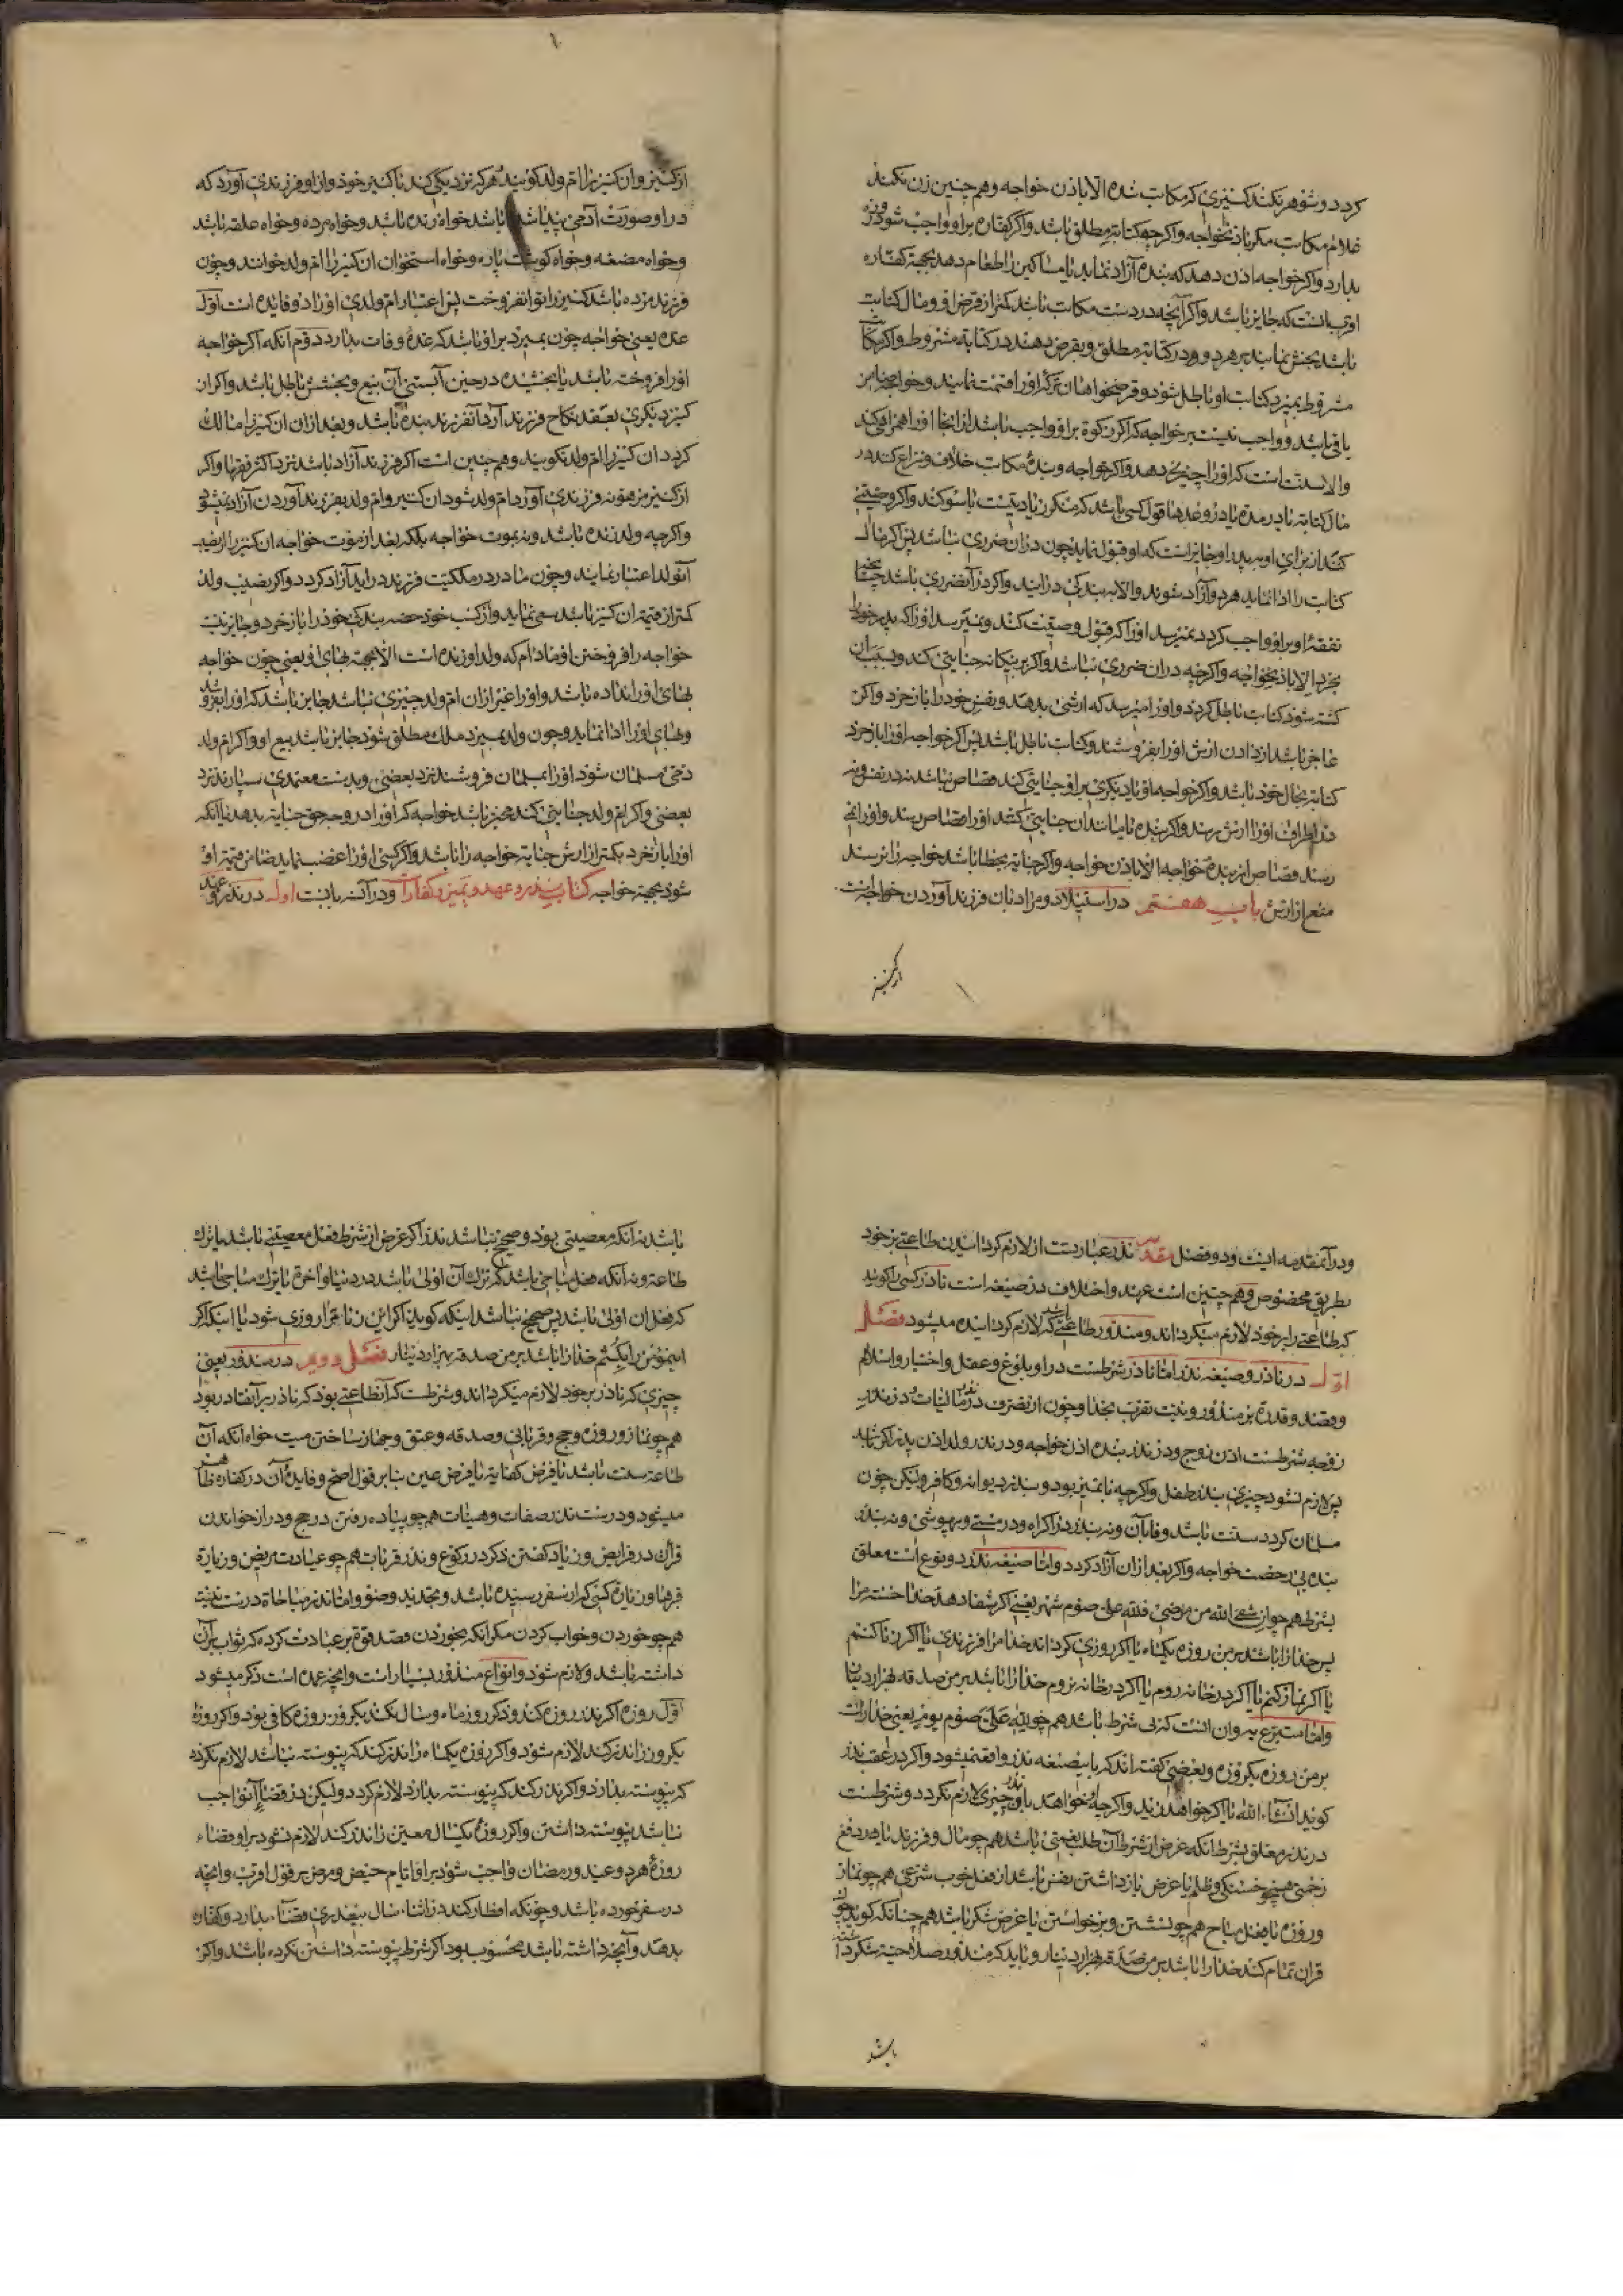 کردد و شوهر نکند کنیزی که مکاتب شده الا باذن خواجه و همچنین زن نکند
غلام مکاتب مکر باذن خواجه و اکرچه کتابة مطلق باشد و اکر کفاره بر او واجب شود روزه
بدارد و اکر خواجه اذن دهد که بنده آزاد نماید یا مساکین را طعام دهد بجهة کفاره
اقرب آنست که جایز باشد و اکر آنچه در دست مکاتب باشد کمتر از قرض او و مال کتابت
باشد بخش نمایند بر هر دو و در کتابة مطلق و بقرض دهند در کتابة مشروط و اکر مکاتب
مشروط بمیرد کتابت او باطل شود و قرضخواهان ترکه او را قسمت نمایند و خواجه ضامن
باقی باشد و واجب نیست بر خواجه که اکر زکوة بر او واجب باشد از انجا او را همراهی کند
والا سنت است که او را چیزی دهد و اکر خواجه و بنده مکاتب خلاف و نزاع کنند در
مال کتابة یا در مدة یا در وعدها قول کسی باشد که منکر زیادتیست با سوکند و اکر وصیتی
کنند از برای او بپدر او جایز است که او قبول نماید چون در ان ضرری نباشد پس اکر مال
کتابت را ادا نماید هر دو آزاد شوند والا ببندکی درایند و اکر در آن ضرری باشد چنانچه
نفقهٔ او بر او واجب کردد نمیرسد او را که قبول وصیت کند و نمیرسد او را که پدر خود را
بخرد الا باذن خواجه و اکرچه در ان ضرری نباشد و اکر بر بیکانه جنایتی کند و بسبب آن
کشته شود کتابت باطل کردد و او را میرسد که ارش بدهد و نفس خود را باز خرد و اکر
عاجز باشد از دادن ارش او را بفروشند و کتابت باطل باشد پس اکر خواجه او را باز خرد
کتابة بحال خود باشد و اکر خواجه او یا دیکری بر او جنایتی کند قصاص نباشد نه در نفس و نه
در اطراف او را ارش رسد و اکر بنده یا مانند ان جنایتی کند او را قصاص رسد و او را نمی
رسد قصاص از بنده خواجه الا باذن خواجه و اکر جنایة بخطا باشد خواجه را نرسد
منع از ارش باب هفتم در استیلاد و مراد بان فرزند آوردن خواجه است
ازکنیز
از کنیز و ان کنیز را ام ولد کویند هر که نزدیکی کند با کنیز خود و از او فرزندی آورد که
در او صورت آدمی پیدا شده باشد خواه زنده باشد و خواه مرده و خواه علقه باشد
و خواه مضغه و خواه کوشت پاره و خواه استخوان ان کنیز را ام ولد خوانند و چون
فرزند مرده باشد کنیز را بتوانفروخت پس اعتبار ام ولدی او را دو فایده است اول
عده یعنی خواجه چون بمیرد بر او باشد که عدهٔ وفات بدارد دوم آنکه اکر خواجه
او را فروخته باشد یا بخشیده در حین آبستنی آن بیع و بخشش باطل باشد و اکر ان
کنیز دیکری بعقد نکاح فرزند آرد آنفرزند بنده باشد و بعد از ان ان کنیز را مالک
کردد ان کنیز را ام ولد نکویند و همچنین است اکر فرزند آزاد باشد نزد اکثر فقها و اکر
از کنیز مرهونه فرزندی آورد ام ولد شود ان کنیز و ام ولد بفرزند آوردن آزاد نمیشود
و اکرچه ولد زنده باشد و نه بموت خواجه بلکه بعد از موت خواجه ان کنیز را از نصیب
آنولد اعتبار نمایند و چون مادر در ملکیت فرزند دراید آزاد کردد و اکر نصیب ولد
کمتر از قیمة ان کنیز باشد سعی نماید و از کسب خود حصه بندکی خود را باز خرد و جایز نیست
خواجه را فروختن او مادام که ولد او زنده است الا بجهة بهای او یعنی چون خواجه
بهای او را نداده باشد و او را غیر از ان ام ولد چیزی نباشد جایز باشد که او را بفروشد
و بهای او را ادا نماید و چون ولد بمیرد ملک مطلق شود جایز باشد بیع او و اکر ام ولد
ذمی مسلمان شود او را بمسلمان فروشند نزد بعضی و بدست معتمدی سپارند نزد
بعضی و اکر ام ولد جنایتی کند مخیر باشد خواجه که او را در وجه حق جنایة بدهد یا آنکه
او را باز خرد بکمتر از ارش جنایة خواجه را باشد و اکر کسی او را غضب نماید ضامن قیمة او
شود بجهة خواجه کتاب نذر و عهد و یمین و کفارات و در آن سه بابست اول در نذر و عهد
و در آنمقدمه ایست و دو فصل مقدمه نذر عبارتست از لازم کردانیدن طاعتی بر خود
بطریق مخصوص و همچنین است عهد و اختلاف در صیغه است ناذر کسی را کویند
که طاعتی را بر خود لازم میکرداند و منذور طاعتی باشد که لازم کردانیده میشود فصل
اول در ناذر و صیغه نذر اما ناذر شرطست در او بلوغ و عقل و اختیار و اسلام
و قصد و قدرة بر منذور و نیت تقرب بخدا و چون از تصرف در مالیات در نذر
زوجه شرطست اذن زوج و در نذر بنده اذن خواجه و در نذر ولد اذن پدر اکر نباشد
پس لازم نشود چیزی بنذر طفل و اکرچه با تمیز بود و بنذر دیوانه و کافر ولیکن چون
مسلمان کردد سنت باشد وفا بآن و نه بنذر در اکراه و در مستی و بیهوشی و نه بنذر
بنده بی رخصت خواجه و اکر بعد از ان آزاد کردد و اما صیغه نذر دو نوع است معلق
بشرط همچو ان شفی الله من مرضی فلله علی صوم شهر یعنی اکر شفا دهد خدا خسته مرا
پس خدا را باشد بر من روزه یکماه یا اکر روزی کرداند خدا مرا فرزندی یا اکر زنا کنم
یا اکر نماز نکنم یا اکر در خانه روم یا اکر در خانه نروم خدا را باشد بر من صدقه بهزار دینار
و اما متبرع به و ان انست که بی شرط باشد همچو لله علی صوم یوم یعنی خدا راست
بر من روزه یکروزه و بعضی کفته اند که باین صیغه نذر واقع نمیشود و اکر در عقب نذر
کوید انشاءالله یا اکر خواهد زید و اکرچه او خواهد باو نذر چیزی لازم نکردد و شرطست
در نذر معلق بشرط آنکه غرض از شرط آن طلب نعمتی باشد همچو مال و فرزند یا در دفع
زحمتی همچو خستکی و ظلم یا غرض باز داشتن نفس باشد از فعل خوب شرعی همچو نماز
و روزه یا فعل مباح همچو نشستن و برخواستن یا غرض شکر باشد همچنانکه کوید چون
قران تمام کند خدا را باشد بر من صدقه هزار دینار و باید که منذور صلاحیة شکر داشته
باشد
باشد نه آنکه معصیتی بود و صحیح نباشد نذر اکر غرض از شرط فعل معصیتی باشد یا ترک
طاعتی و نه آنکه فعل مباحی باشد که ترک آن اولی باشد در دنیا و آخرة یا ترک مباحی باشد
که فعل ان اولی باشد پس صحیح نباشد اینکه کوید اکر این زنا مرا روزی شود یا اینکه اکر
این مؤمن را بکشتم خدا را باشد بر من صدقه بهزار دینار فصل دویم در منذور یعنی
چیزی که ناذر بر خود لازم میکرداند و شرطست که آنطاعتی بود که ناذر بر آنقادر بود
همچو نماز و روزه و حج و قربانی و صدقه و عتق و جهاز ساختن میت خواه آنکه آن
طاعة سنت باشد یا فرض کفایة یا فرض عین بنابر قول اصح و فایدهٔ آن در کفاره ظاهر
میشود و درست نذر صفات و هیئات همچو پیاده رفتن در حج و دراز خواندن
قرآن در فرایض و زیاد کفتن ذکر در رکوع و نذر قربات همچو عیادت مریض و زیارة
قبرها و زیارة کسی که از سفر رسیده باشد و تجدید وضو و اما نذر مباحاة درست نیست
همچو خوردن و خواب کردن مکر آنکه بخوردن قصد قوة بر عبادت کرده که ثواب بر آن
داشته باشد و لازم شود و انواع منذور بسیار است و آنچه عمده است ذکر میشود
اول روزه اکر نذر روزه کند و ذکر روز ماه و سال نکند یکروز روزه کافی بود و اکر روزهٔ
یکروز را نذر کند لازم شود و اکر روزه یکماه را نذر کند که پیوسته نباشد لازم نکردد
که پیوسته بدارد و اکر نذر کند که پیوسته بدارد لازم کردد ولیکن در قضای آنواجب
نباشد پیوسته داشتن و اکر روزهٔ یکسال معین را نذر کند لازم نشود بر او قضاء
روزهٔ هر دو عید و رمضان و واجب شود بر او ایام حیض و مرض بر قول اقرب و آنچه
در سفر خورده باشد و چونکه افطار کند در اثناء سال بی‌عذری قضاء بدارد و کفاره
بدهد و آنچه داشته باشد محسوب بود اکر شرط پیوسته داشتن نکرده باشد و اکر